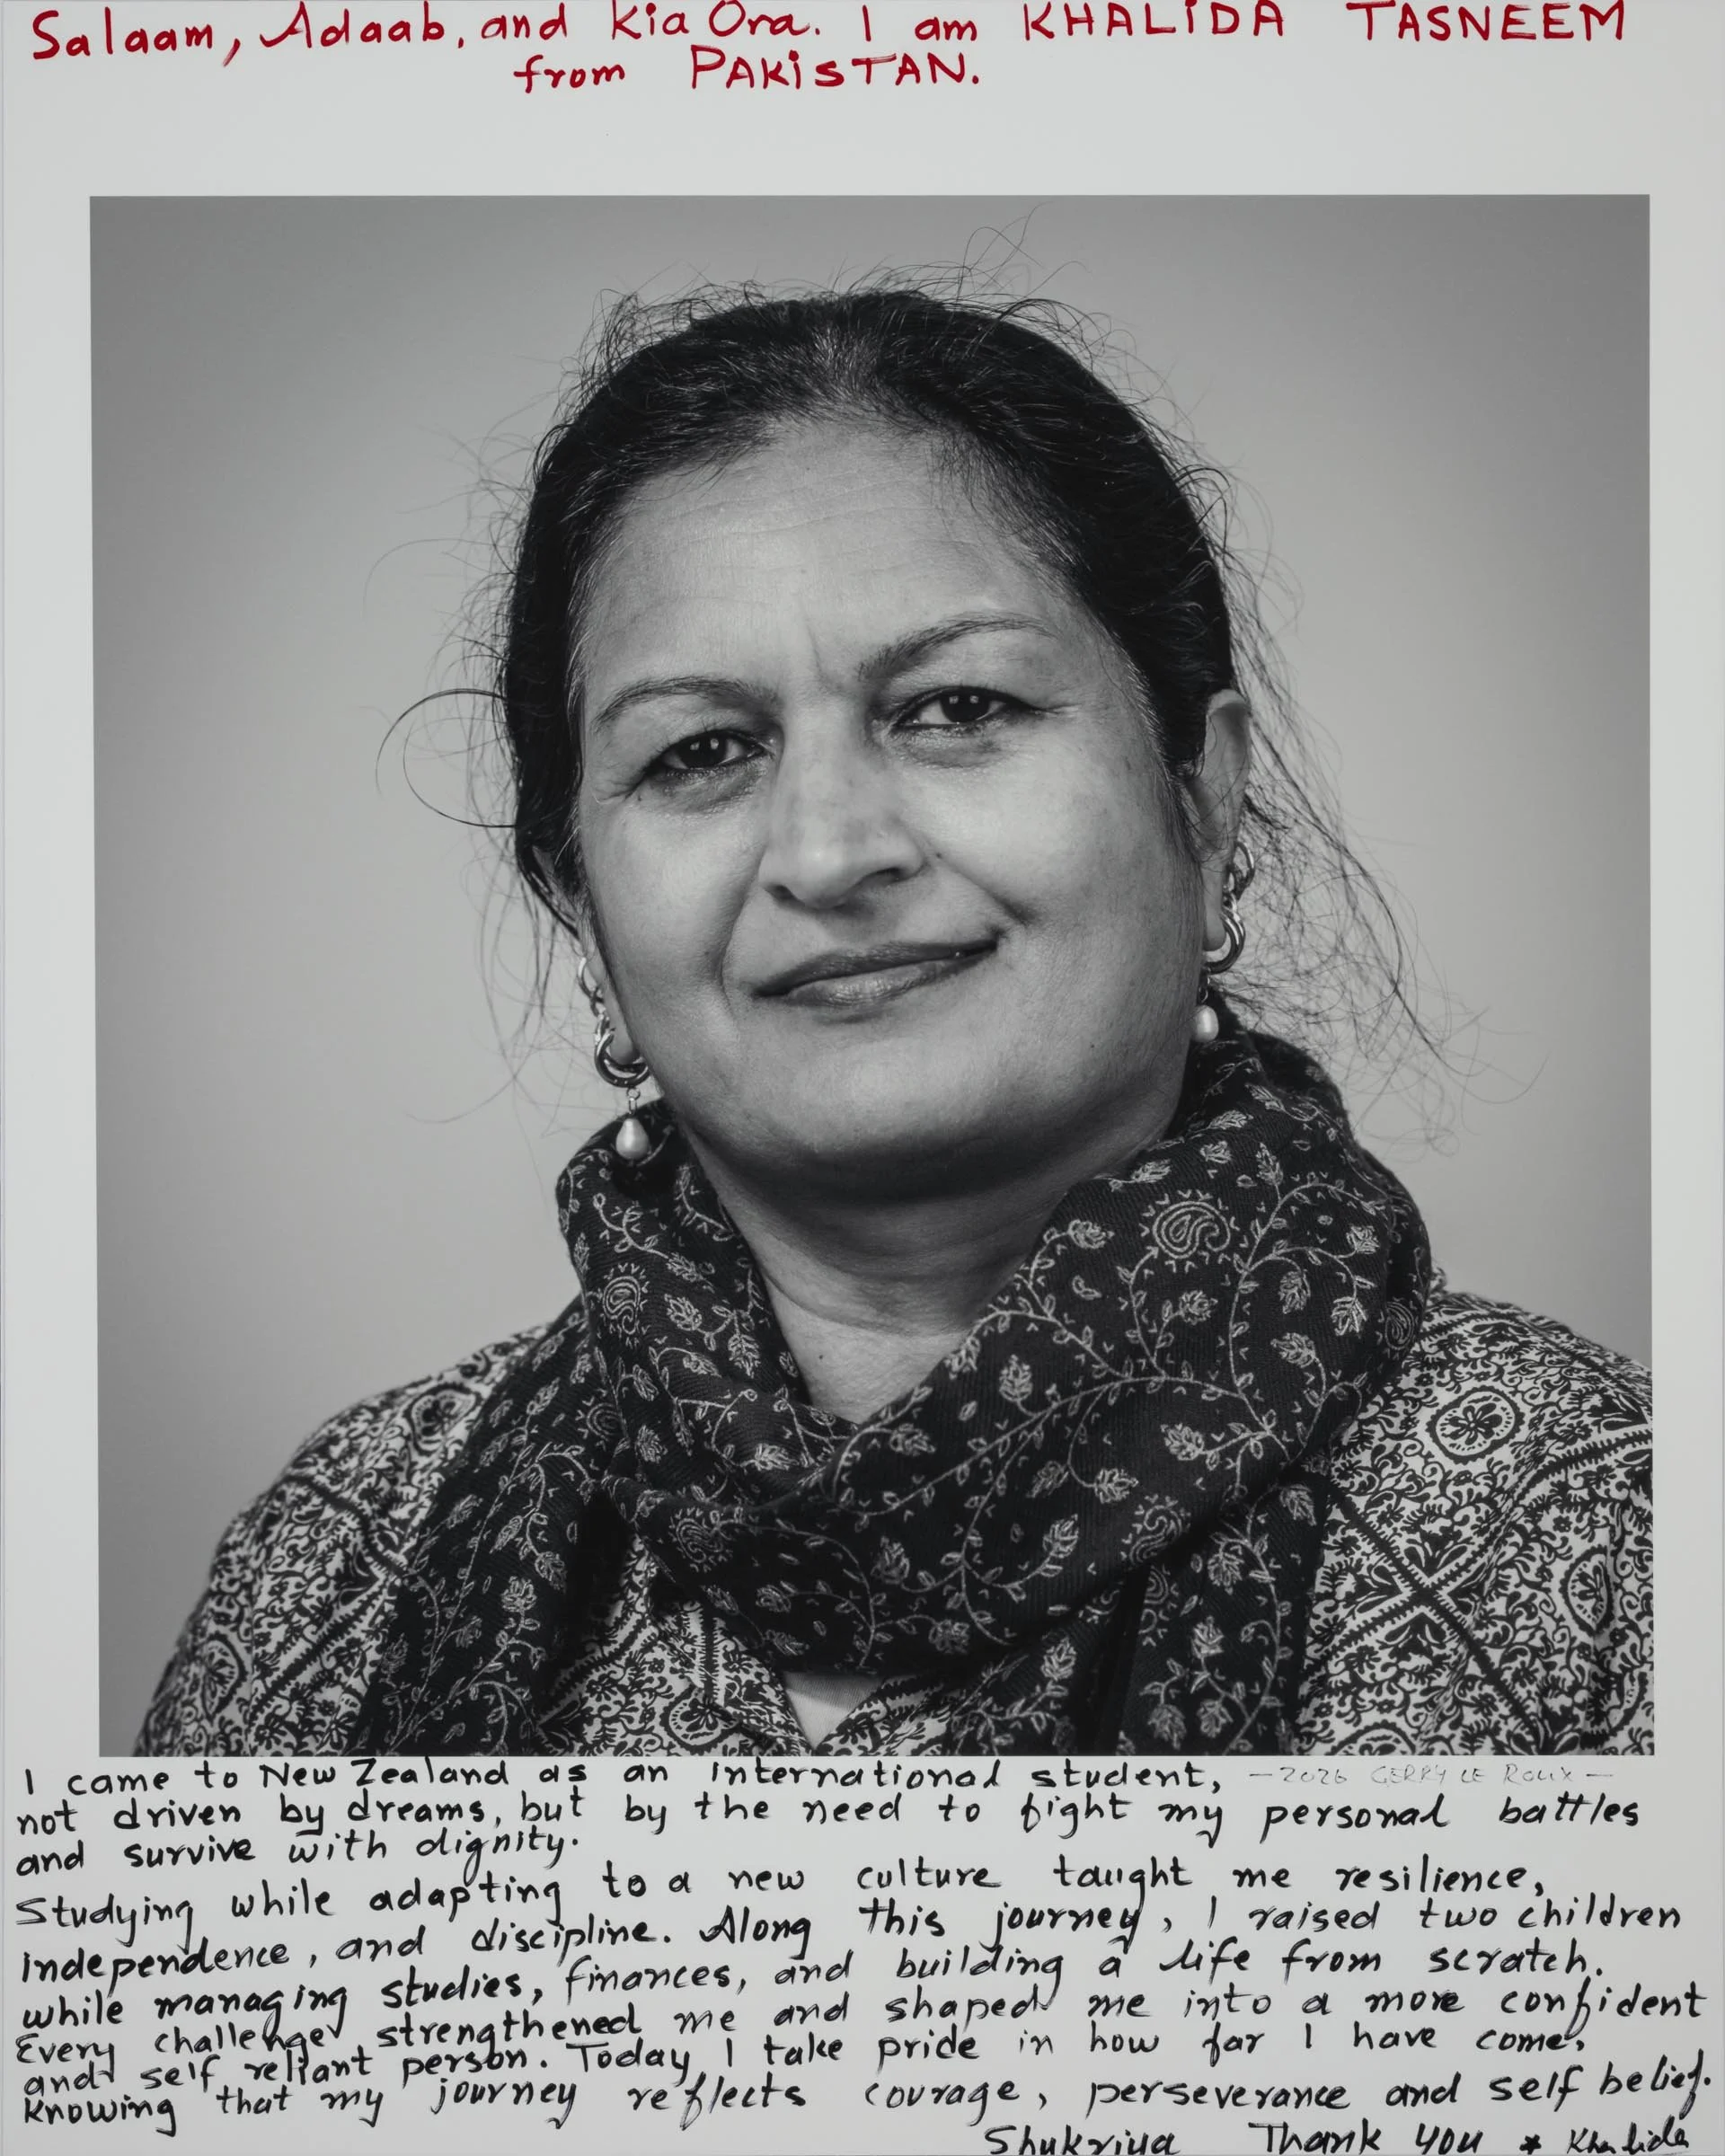 Salaam, Adaab, and Kia Ora. I am KHALIDA TASNEEM
from PAKISTAN.
I came to New Zealand as an international student, —2026 GERRY LE ROUX—
not driven by dreams, but by the need to fight my personal battles
and survive with dignity.
Studying while adapting to a new culture taught me resilience,
independence, and discipline. Along this journey, I raised two children
while managing studies, finances, and building a life from scratch.
Every challenge strengthened me and shaped me into a more confident
and self reliant person. Today I take pride in how far I have come.
Knowing that my journey reflects courage, perseverance and self belief.
Shukriya Thank you * Khalida